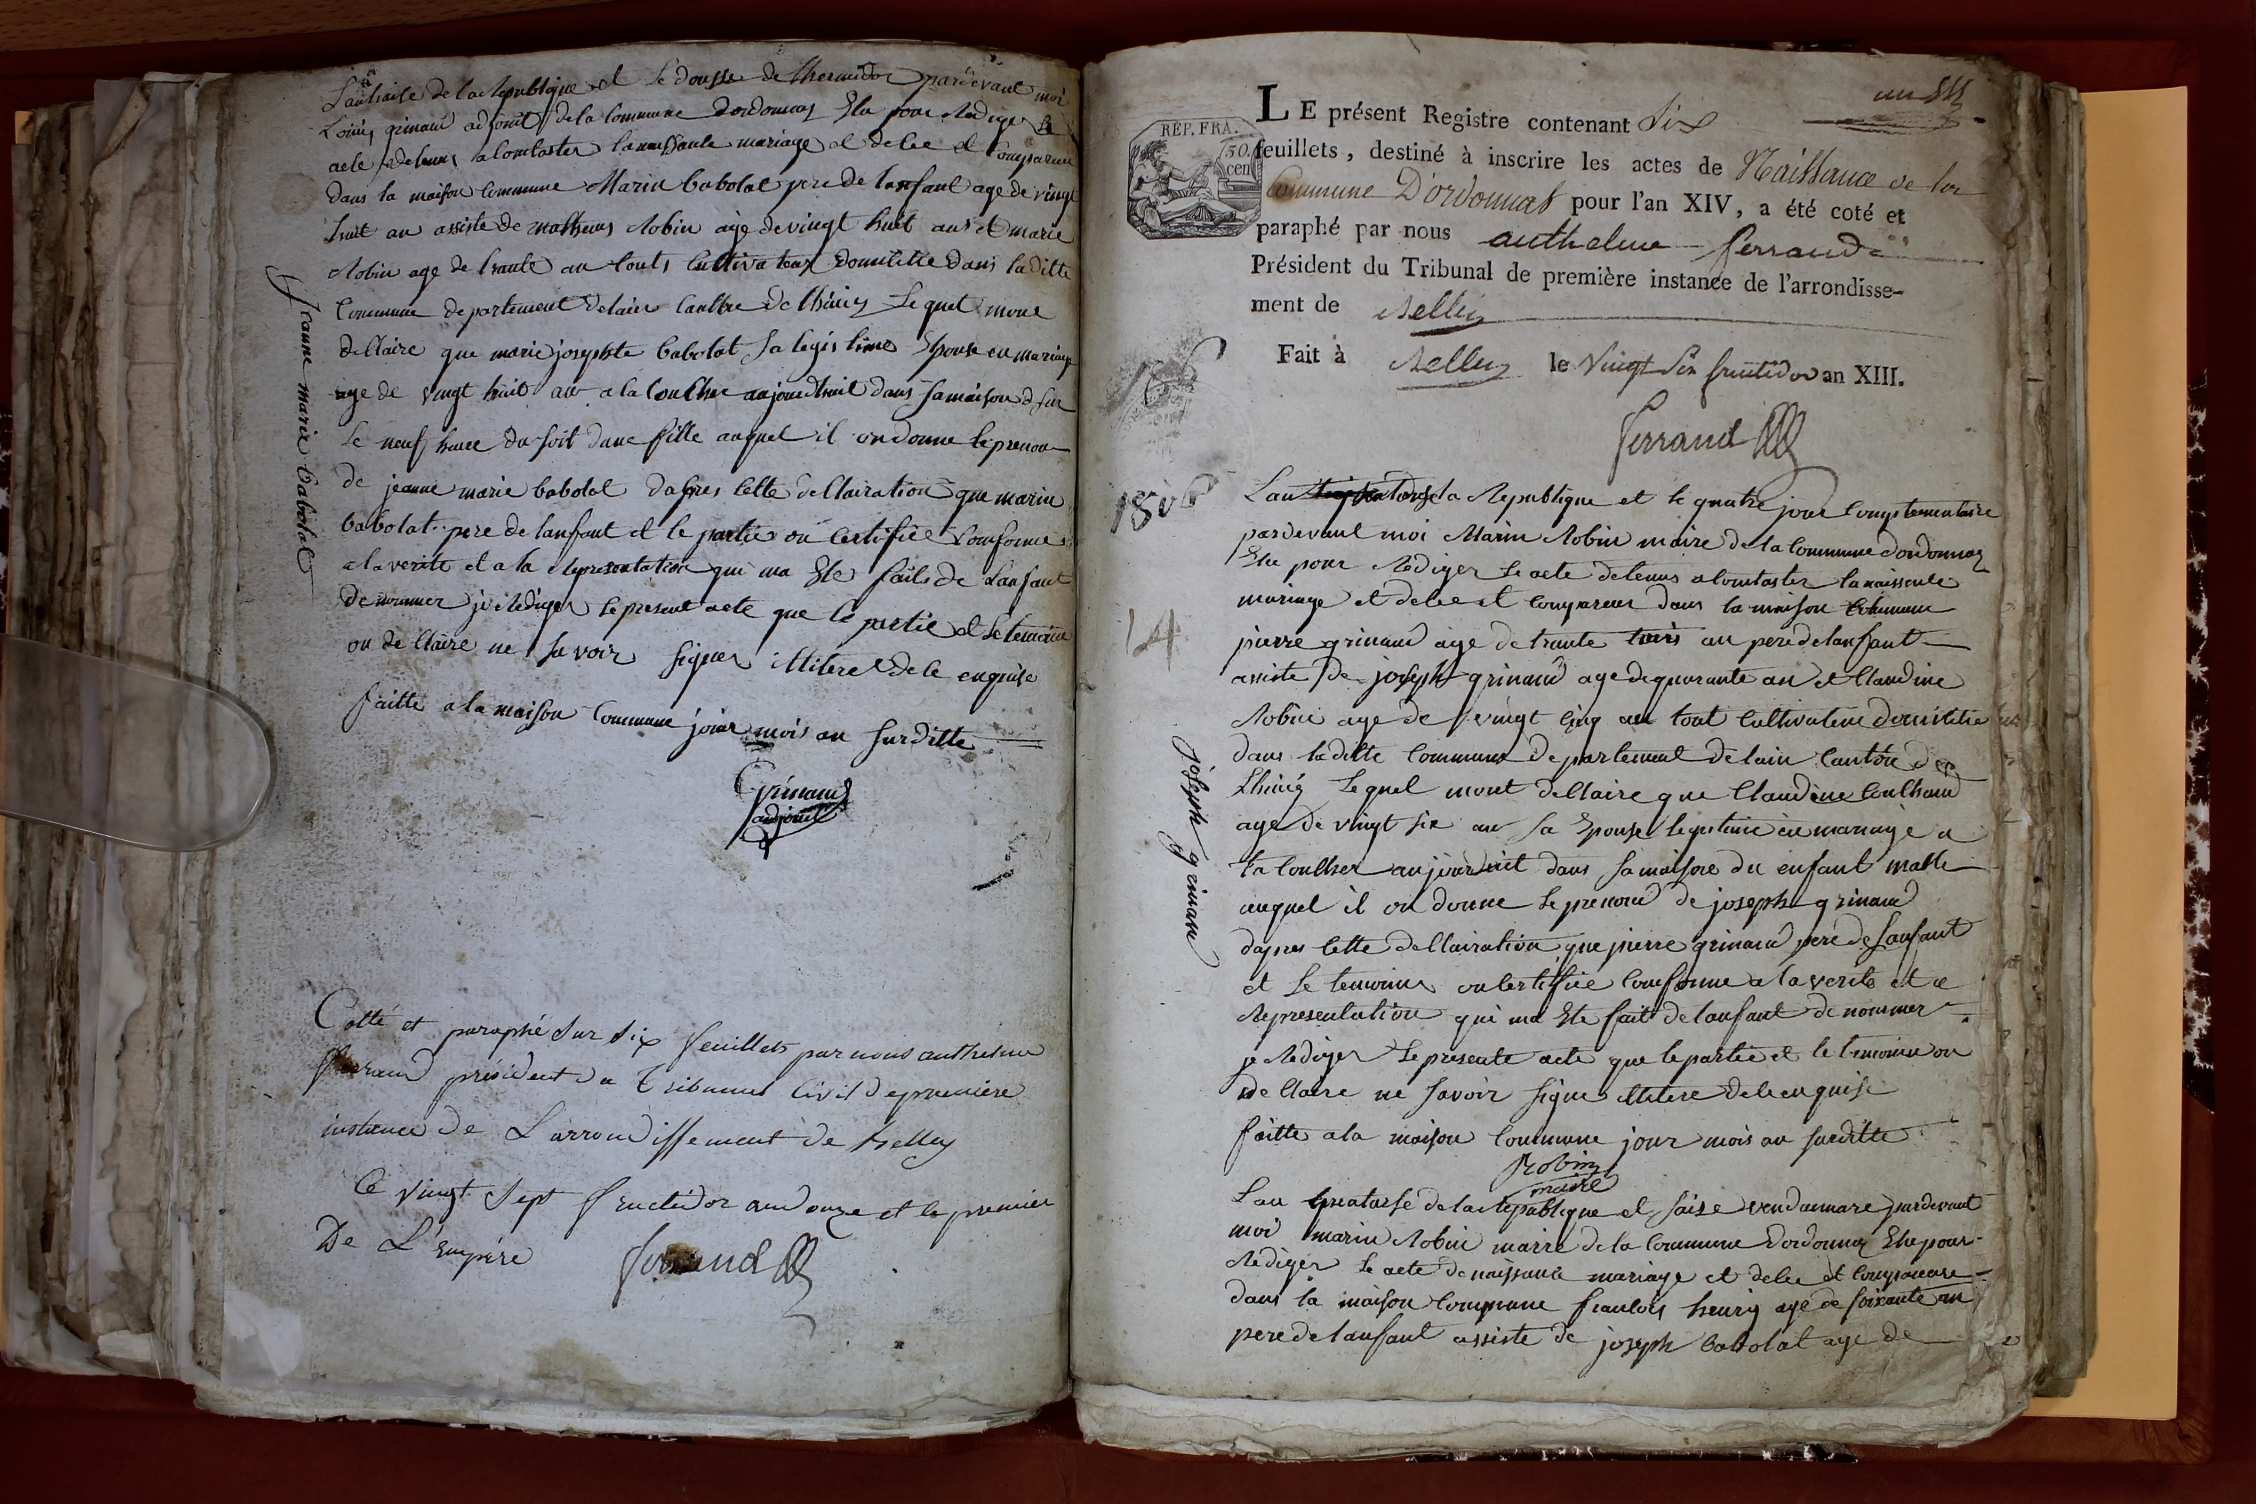 L'an traise de la republique et le dousse de thermidor pardevant moi
Louis grinand adjoint de la commune dordonnas Elu pour Rediger le
acte detenus a Comtaster la naissante mariage et dele et Comparus
dans la maison Commune Marin babolat pere de lanfant age de vingt
huit an assiste de matheus Robin age de vingt huit ans et marie
Robin age de trante an touts Cultivateux domicilie dans la ditte
Commune departement delain Canton de Lhuis Le quel mont
dellaire que marie josephte babolat sa legistime Epouse en mariage
age de vingt huit an a la Couche aujourdhuit dans sa maison sur
le neuf heure du soit dune fille auquel il on donne le prenom
de jeanne marie babolat dapres Cette dellairation que marin
babolat pere de lanfant et le partie on Certifiee Comforme
a la verite et a la Representation qui ma Ete faite de Lanfant
denommer je Rediger le present acte que le partie et le temoine
on dellaire ne savoir signer illitere de le enquise
faitte a la maison Commune jour mois an surditte
Grinand
adjoint
Jeanne marie babolat
Cotté et paraphé sur six feuillets par nous anthelme
ferrand président du Tribunal Civil de premiere
instance de L'arrondissement de Belley
Ce vingt sept fructidor an douze et le premier
De L'Empire ferrand
LE présent Registre contenant six
feuillets, destiné à inscrire les actes de Naissance de la
Commune D'ordonnas pour l'an XIV, a été coté et
paraphé par nous anthelme ferrand
Président du Tribunal de première instance de l'arrondisse-
ment de Belley
Fait à Belley le vingt six fructidor an XIII.
ferrand
REP. FRA.
50.
cen
1806
14
L'an la Republique et le quatre jour Complementaire
pardevant moi Marin Robin maire de la Commune dordonnas
Elu pour Rediger le acte detenus a Comtaster la naissente
mariage et dele et Compareus dans la maison Commune
pierre grinand age de trante trois an pere de lanfant
assiste de joseph grinand age de quarante an et Claudine
Robin age de vingt Cinq an tout Cultivateur domicilie
dans la ditte Commune departement delain Canton de
Lhuis Le quel mont dellaire que Claudine Couthand
age de vingt six an sa Epouse legestime en mariage a
ta Couther aujourduit dans sa maison du enfant malle
auquel il on donne le prenom de joseph grinand
dapres Cette dellairation que pierre grinand pere de Lanfant
et le temoine on Certifiée Comforme a la verite et a
Representation qui ma Ete fait de lanfant denommer
je Rediger le presente acte que le partie et le temoine on
dellaire ne savoir signer illitere de le enquise
faitte a la maison Commune jour mois an surditte
Robin
maire
joseph grinand
L'an quatorse de la Republique et saise vendamare pardevant
moi marin Robin maire de la Commune dordonnas Elu pour
Rediger le acte de naissance mariage et dele et Comparare
dans la maison Commune francois henrig age de soixante an
pere de lanfant assiste de joseph babolat age de